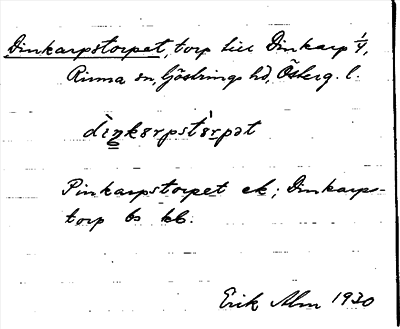 Dinkarpstorpet, torp till Dinkarp 1/4,
Rinna sn, Göstrings hd, Österg. l.
dìŋkarpstàrpət
Pinkarpstorpet ek; Dinkarps-
torp bs kb.
Erik Alm 1930